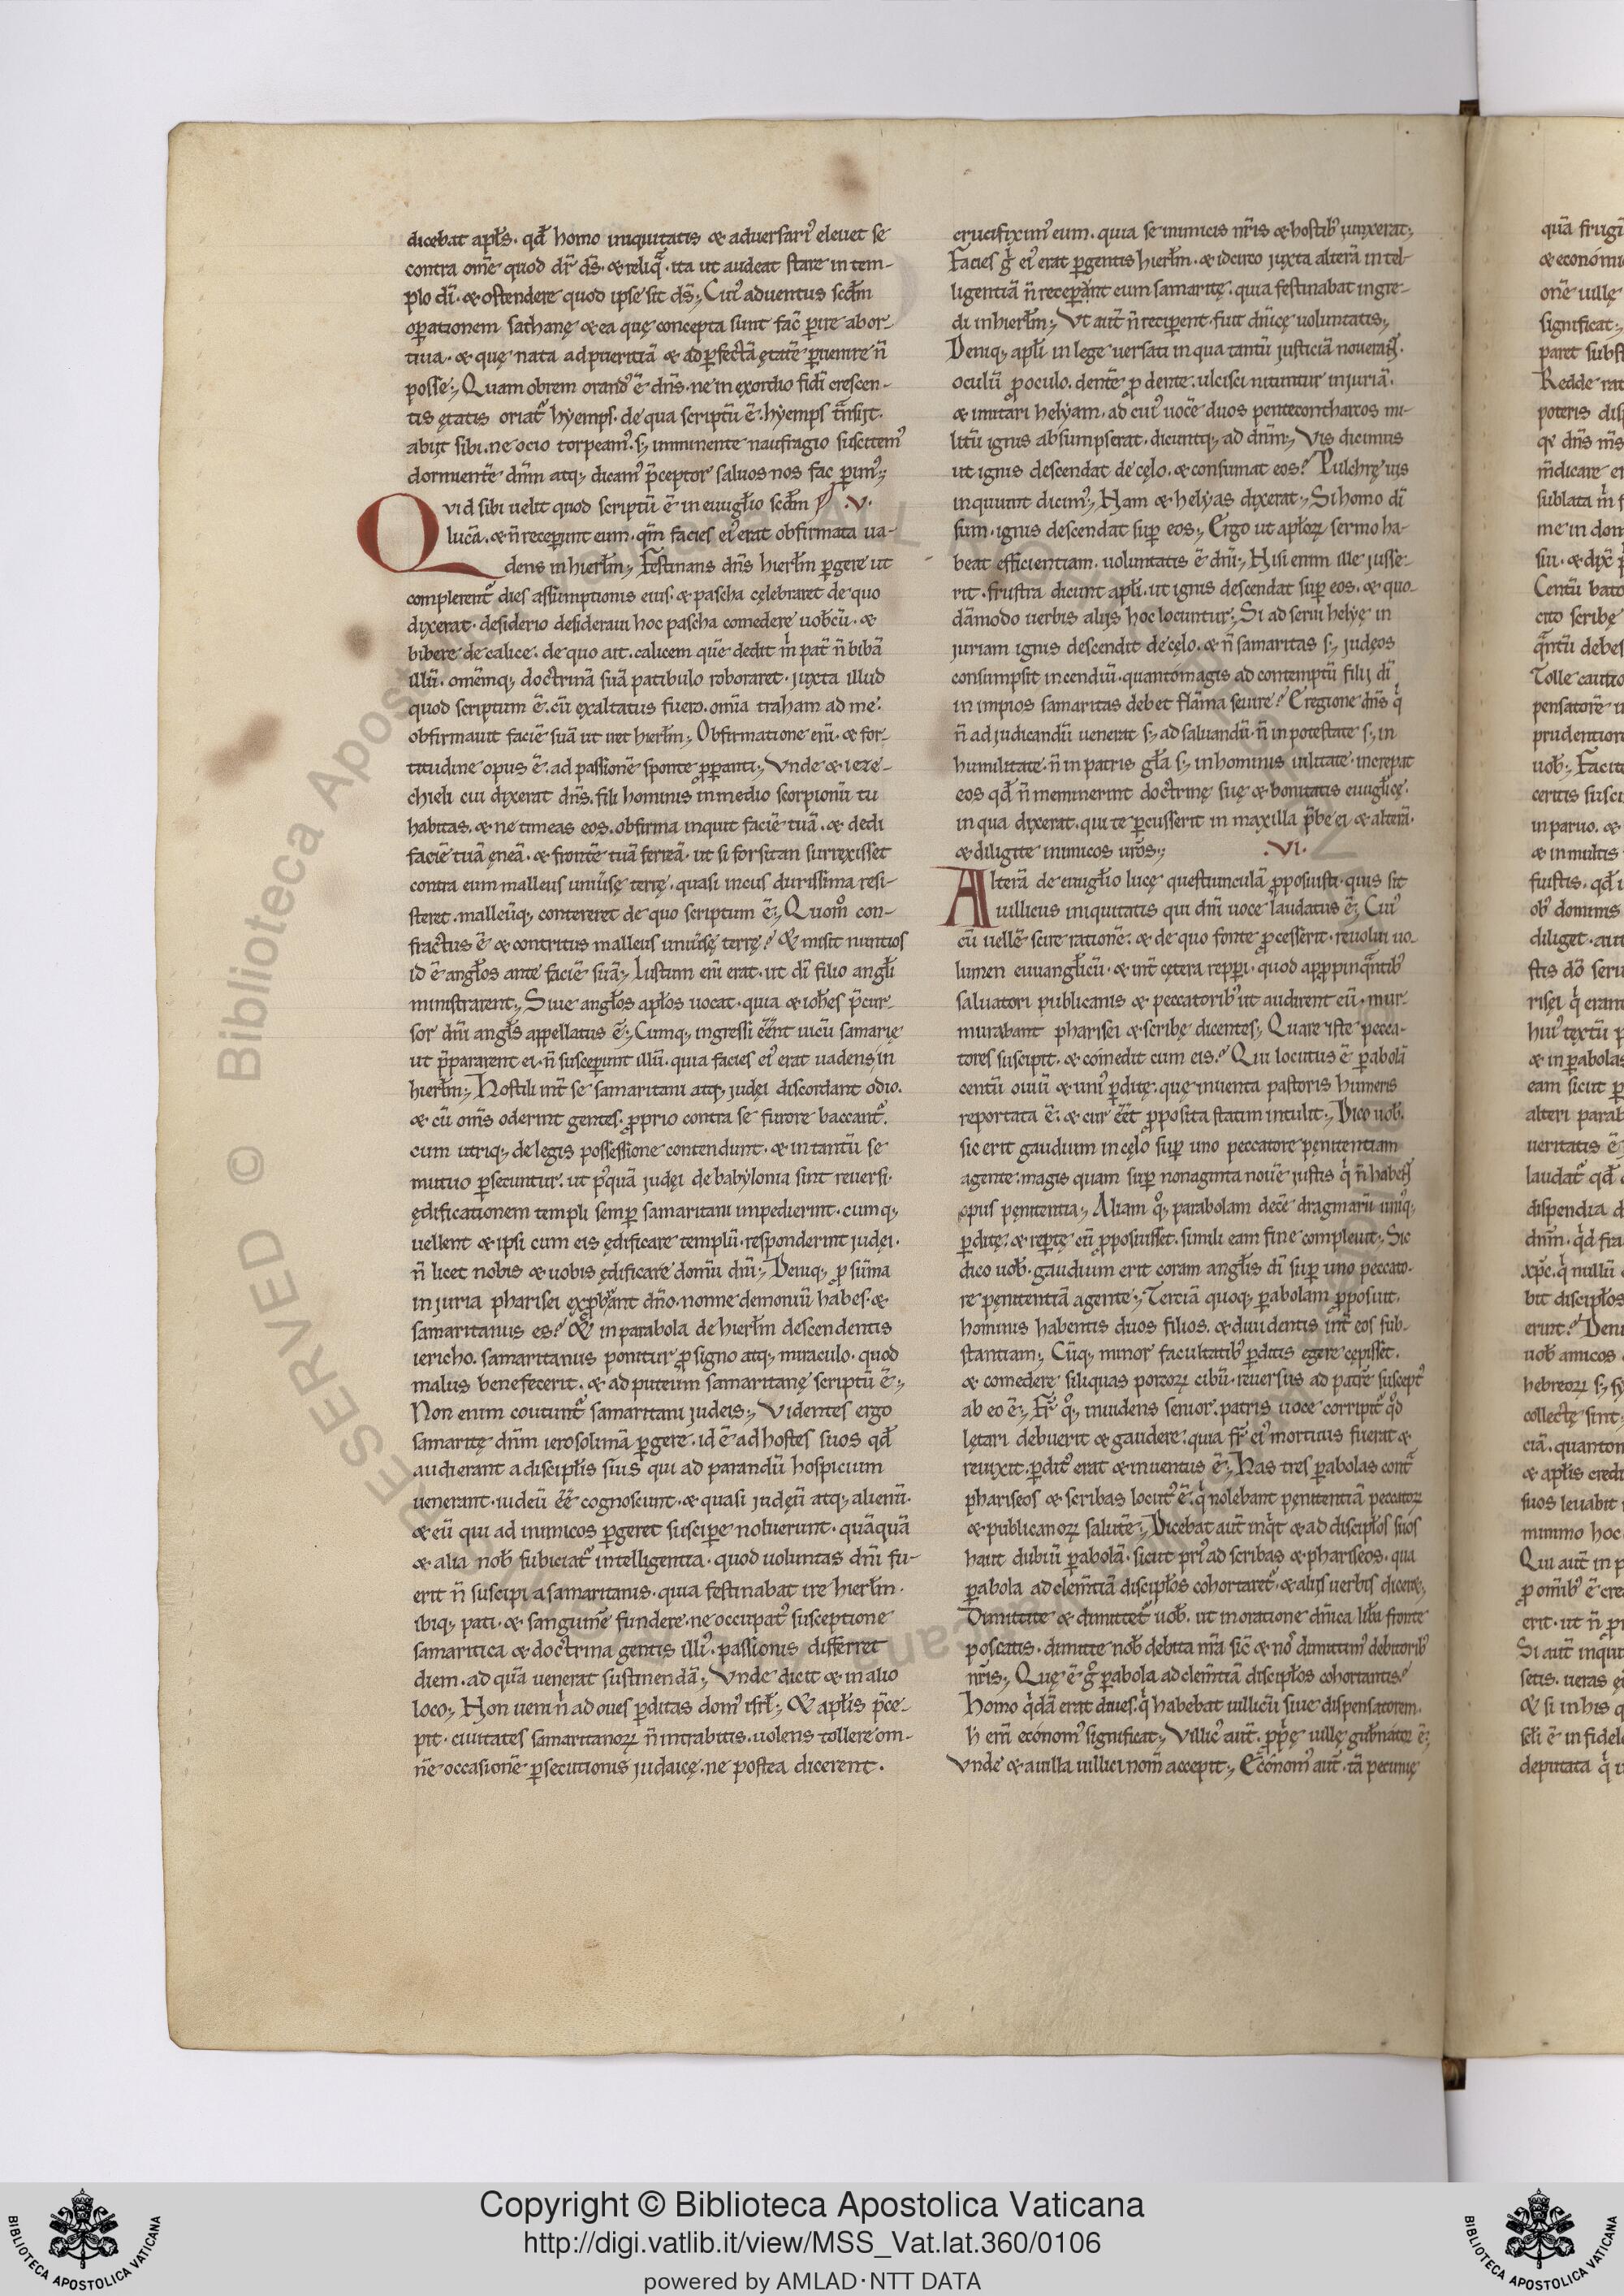 dicebat apłs. qđ homo iniquitatis & aduersari᾿ eleuet se
contra om̄e quod dr̄ ds̄. & reliq̄. ita ut audeat stare in tem-
plo dī. & ostendere quod ipse sit ds̄; Cui᾿ aduentus scđm
oꝑationem sathanę & ea quę concepta sunt fac̄ ꝑire abor-
tiua. & quę nata ad pueritiā & ad ꝑfectā ętatē ꝑuenire n̄
posse; Quam obrem orand᾿ ē dn̄s. ne in exordio fidī crescen-
tis ętatis oriat᾿ hyemps. de qua scriptū ē. hyemps t̄nsijt.
abijt sibi. ne ocio torpeam᾿. s; imminente naufragio suscitem᾿
dormientē dn̄m atq; dicam᾿ p̄ceptor saluos nos fac ꝑim᾿;
Quid sibi uelit quod scriptū ē in euuglīo scđm .V.
lucā. & n̄ receperunt eum. qm̄ facies ei᾿ erat obfirmata ua-
dens in hierłm; Festinans dn̄s hierłm ꝑgere ut
complerent᾿ dies assumptionis eius. & pascha cęlebraret de quo
dixerat. desiderio desideraui hoc pascha comedere uobcū. &
bibere de calice. de quo ait. calicem quē dedit m̄ pat̄ n̄ bibā
illū. omēmq; doctrinā suā patibulo roboraret. juxta illud
quod scriptum ē. cū exaltatus fuero. omīa traham ad me.
obfirmauit faciē suā ut iret hierłm; Obfirmatione enī. & for-
titudine opus ē. ad passionē sponte ꝓꝑanti; Vnde & ieze-
chieli cui dixerat dn̄s. fili hominis in medio scorpionū tu
habitas. & ne timeas eos. obfirma inquit faciē tuā. & dedi
faciē tuā ęneā. & frontē tuā ferreā. ut si forsitan surrexisset
contra eum malleus uniūsę terrę. quasi incus durissima resi-
steret. malleūq; contereret de quo scriptum ē; Quom° con-
fractus ē & contritus malleus uniūsę terrę? & misit nuntios
id ē angłos ante faciē suā; Iustum enī erat. ut dī filio angłi
ministrarent; Siue angłos apłos uocat. quia & iohes p̄cur-
sor dn̄i angłs appellatus ē; Cumq; ingressi eēnt uicū samarię
ut p̄pararent ei. n̄ susceperunt illū. quia facies ei᾿ erat uadens in
hierłm; Hostili int̄ se samaritani atq; judęi discordant odio.
& cū om̄s oderint gentes. ꝓprio contra se furore baccant᾿.
cum utriq; de legis possessione contendunt. & in tantū se
mutuo ꝑsecuntur. ut p᾿quā judęi de babylonia sint reuersi.
ędificationem templi semꝑ samaritani impedierint. cumq;
uellent & ipsi cum eis ędificare templū. responderint judęi.
n̄ licet nobis & uobis ędificare domū dn̄i; Deniq; ꝓ sūma
injuria pharisei exꝓbrant dn̄o. nonne demoniū habes. &
samaritanus es? & in parabola de hierłm descendentis
iericho. samaritanus ponitur ꝓ signo atq; miraculo. quod
malus benefecerit. & ad puteum samaritanę scriptū ē;
Non enim coutunt᾿ samaritani judeis; Videntes ergo
samaritę dn̄m ierosolimā ꝑgere. id ē ad hostes suos qđ
audierant a discipłis sius qui ad parandū hospicium
uenerant. iudeū eē cognoscunt. & quasi judęū atq; alienū.
& eū qui ad inimicos ꝑgeret suscipe noluerunt. quāquā
& alia nob̄ subiciat᾿ intelligentia. quod uoluntas dn̄i fu-
erit n̄ suscipi a samaritanis. quia festinabat ire hierłm.
ibiq; pati. & sanguinē fundere. ne occupat᾿ susceptione
samaritica & doctrina gentis illi᾿. passionis differret
diem. ad quā uenerat sustinendā; Vnde dicit & in alio
loco; Non ueni n̄ ad oues ꝑditas dom᾿ isrł; & apłis p̄ce-
pit. ciuitates samaritanorꝝ n̄ intrabitis. uolens tollere om-
nē occasionē ꝑsecutionis judaicę. ne postea dicerent.
crucifixim᾿ eum. quia se inimicis nr̄is & hostib᾿ junxerat;
Facies g᾿ ei᾿ erat ꝑgentis hierłm. & idcirco juxta alterā intel-
ligentiā n̄ receperant eum samaritę. quia festinabat ingre-
di in hierłm; Vt aut̄ n̄ reciperent. fuit dn̄icę uoluntatis;
Deniq; apłi in lege uersati in qua tantū justiciā nouerant.
oculū ꝓ oculo. dentē ꝓ dente. ulcisci nituntur injuriā.
& imitari helyam. ad cui᾿ uocē duos pentecontharcos mi-
litū ignis absumpserat. dicuntq; ad dn̄m; Vis dicimus
ut ignis descendat de cęlo. & consumat eos? Pulchrę uis
inquiunt dicim᾿; Nam & helyas dixerat; Si homo dī
sum. ignis descendat suꝑ eos; Ergo ut apłorꝝ sermo ha-
beat efficientiam. uoluntatis ē dn̄i; Nisi enim ille jusse-
rit. frustra dicunt apłi. ut ignis descendat suꝑ eos. & quo-
dāmodo uerbis alijs hoc locuntur; Si ad serui helyę in
juriam ignis descendit de cęlo. & n̄ samaritas s; judeos
consumpsit incendiū. quantomagis ad contemptū filij dī
in impios samaritas debet flāma seuire? E regione dn̄s q᾿
n̄ ad judicandū uenerat s; ad saluandū. n̄ in potestate s; in
humilitate. n̄ in patris głā s; in hominis uilitate. increpat
eos qđ n̄ meminerint doctrinę suę & bonitatis euuglīcę.
in qua dixerat. qui te ꝑcusserit in maxilla p̄be ei & alterā.
& diligite inimicos uros; .VI.
Alterā de euuglīo lucę questiunculā ꝓposuisti. quis sit
uillicus iniquitatis qui dn̄i uoce laudatus ē; Cui᾿
cū uellē scire rationē. & de quo fonte ꝓcesserit. reuolui uo-
lumen euuanglīcū. & int̄ cętera repꝑi. quod apꝓpinq̄ntib᾿
saluatori publicanis & peccatorib᾿ ut audirent eū. mur-
murabant pharisei & scribę dicentes; Quare iste pecca-
tores suscipit. & comedit cum eis? Qui locutus ē ꝑabolā
centū ouiū & uni᾿ ꝑditę. quę inuenta pastoris humeris
reportata ē. & cur eēt ꝓposita statim intulit; Dico uob̄.
sic erit gaudium in cęlo suꝑ uno peccatore penitentiam
agente. magis quam suꝑ nonaginta nouē justis q᾿ n̄ habent
opus pęnitentia; Aliam q°; parabolam decē dragmarū uni᾿q;
ꝑditę. & reꝑtę cū ꝓposuisset. simili eam fine compleuit; Sic
dico uob̄. gaudium erit coram angłis dī suꝑ uno peccato-
re pęnitentiā agente; Terciā quoq; ꝑabolam ꝓposuit.
hominis habentis duos filios. & diuidentis int̄ eos sub-
stantiam; Cūq; minor facultatib᾿ ꝑditis egere cępisset.
& comedere siliquas porcorꝝ cibū. reuersus ad patrē suscept᾿
ab eo ē; Fr̄ q°; inuidens senior. patris uoce corripit᾿ q°d
lętari debuerit & gaudere. quia fr̄ ei᾿ mortuus fuerat &
reuixit. ꝑdit᾿ erat & inuentus ē; Has tres ꝑabolas cont̄
phariseos & scribas locut᾿ ē. q᾿ nolebant pęnitentiā peccatorꝝ
& publicanorꝝ salutē; Dicebat aut̄ inq᾿t & ad discipłos suos
haut dubiū ꝑabolā. sicut pri᾿ ad scribas & phariseos. qua
ꝑabola ad clem̄tiā discipłos cohortaret᾿. & alijs uerbis dicere;
Dimittite & dimittet᾿ uob̄. ut in oratione dn̄ica lib̄a fronte
poscatis. dimitte nob̄ debita nr̄a sic̄ & no᾿ dimittim᾿ debitorib᾿
nr̄is; Quę ē g° ꝑabola ad clem̄tiā discipłos cohortantis?
Homo q᾿dā erat diues. q᾿ habebat uillicū siue dispensatorem.
h̄ em̄ economꝰ significat; Villic᾿ aut̄. ꝓp̄ę uillę gub̄nator ē;
Vnde & auilla uillici nom̄ accepit; Economꝰ aut̄. tā pecunię